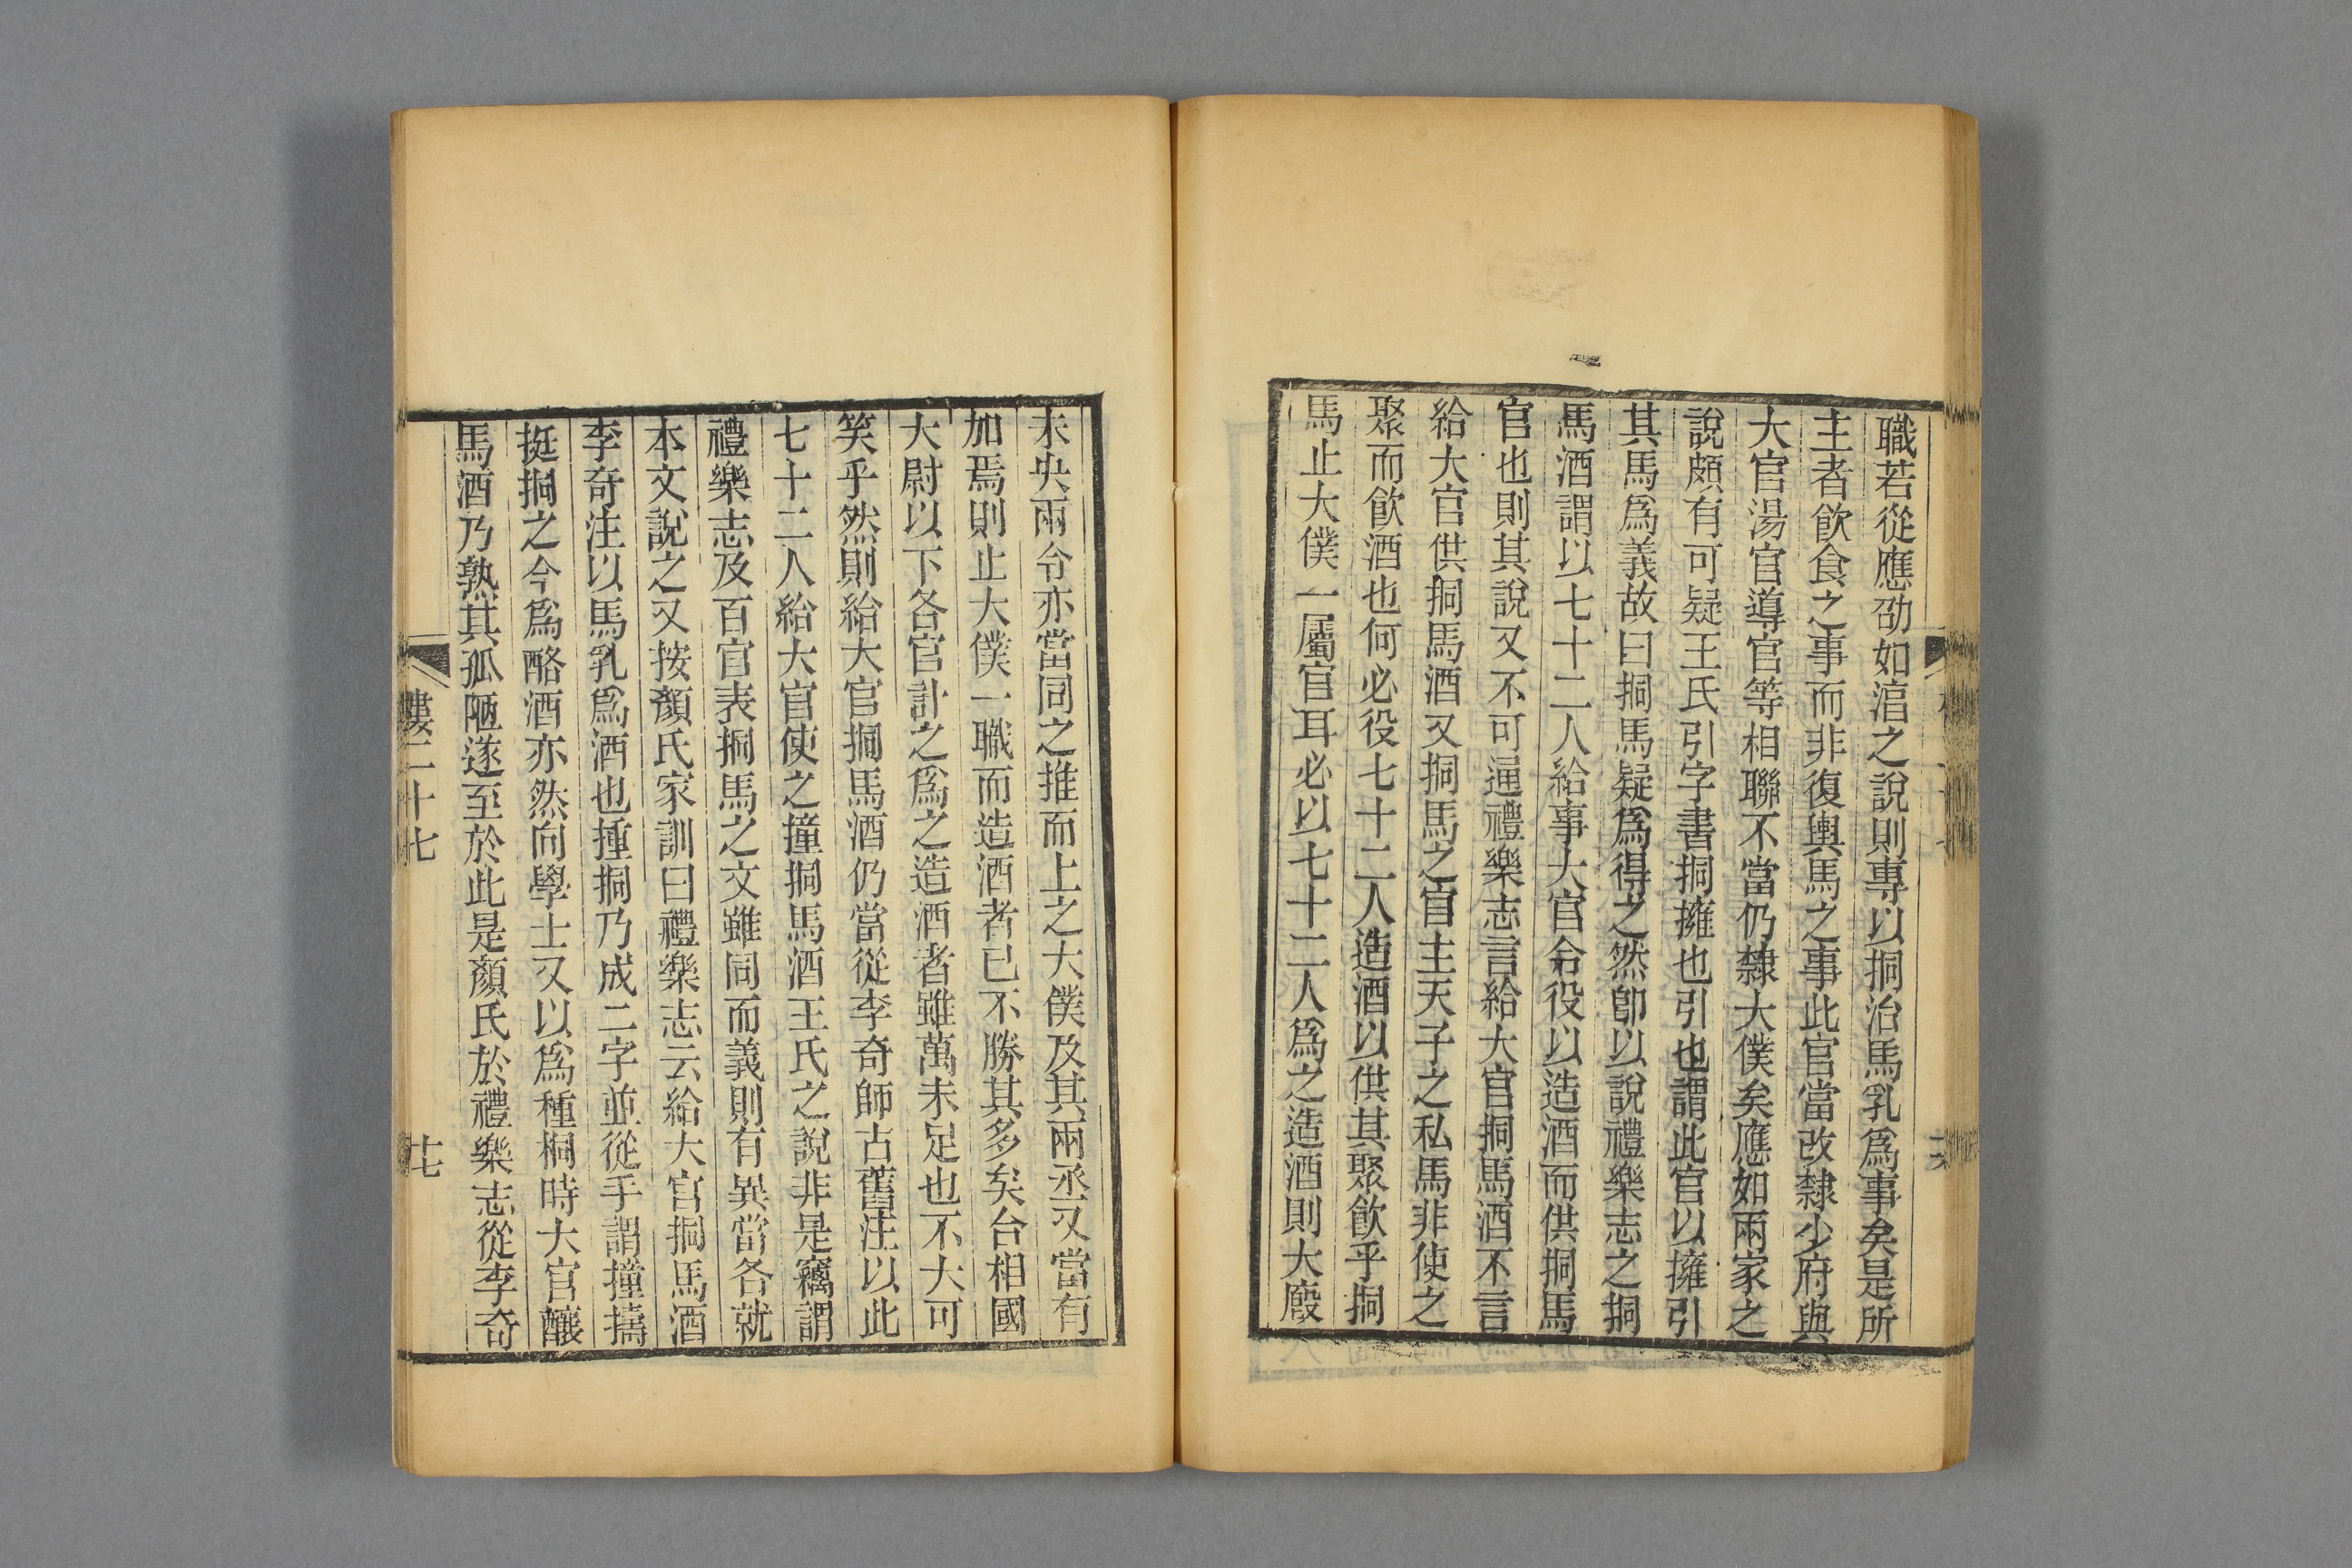 職若從應劭如淳之說則專以挏治馬乳爲事矣是所
主者飮食之事而非復輿馬之事此官當改隸少府與
大官湯官導官等相聯不當仍隸大僕矣應如兩家之
說頗有可疑王氏引字書挏擁也引也謂此官以擁引
其馬爲義故曰挏馬疑爲得之然卽以說禮樂志之挏
馬酒謂以七十二人給事大官令役以造酒而供挏馬
官也則其說又不可通禮樂志言給大官挏馬酒不言
給大官供挏馬酒又挏馬之官主天子之私馬非使之
聚而飮酒也何必役七十二人造酒以供其聚飮乎挏
馬止大僕一屬官耳必以七十二人爲之造酒則大廄
未央兩令亦當同之推而上之大僕及其兩丞又當有
加焉則止大僕一職而造酒者已不勝其多矣合相國
大尉以下各官計之爲之造酒者雖萬未足也不大可
笑乎然則給大官挏馬酒仍當從李奇師古舊注以此
七十二人給大官使之撞挏馬酒王氏之說非是竊謂
禮樂志及百官表挏馬之文雖同而義則有異當各就
本文說之又按顏氏家訓曰禮樂志云給大官挏馬酒
李奇注以馬乳爲酒也揰挏乃成二字並從手謂撞擣
挺挏之今爲酪酒亦然向學士又以爲種桐時大官釀
馬酒乃熟其孤陋遂至於此是顏氏於禮樂志從李奇
廔二十七
十七